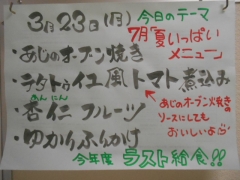 3月23日(月)
今日のテーマ
7月「夏いっぱいメニュー」
・あじのオーブン焼き
・ラタトゥイユ風トマト煮込み
あんにん
・杏仁フルーツ
あじのオーブン焼きの
ソースにしても
おいしいよ
・ゆかりふりかけ
今年度 ラスト給食!!